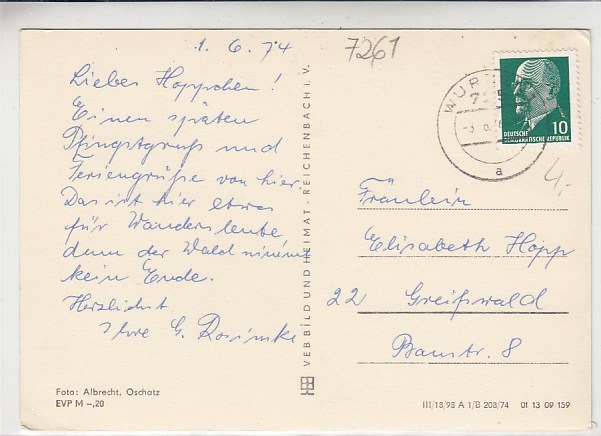 1. 6. 74
Liebes Hoppchen!
Einen späten
Pfingstgruß und
Feriengrüße von hier.
Das ist hier etwas
für Wandersleute
denn der Wald nimmt
kein Ende.
Herzlichst
Ihre G. Rosinske
Foto: Albrecht, Oschatz
EVP M –,20
VEB BILD UND HEIMAT · REICHENBACH i. V.
7261
WUR
a
DEUTSCHE
DEMOKRATISCHE REPUBLIK
10
4,-
Fräulein
Elisabeth Hopp
22 Greifswald
Baustr. 8
III/18/98 A 1/B 208/74 01 13 09 159